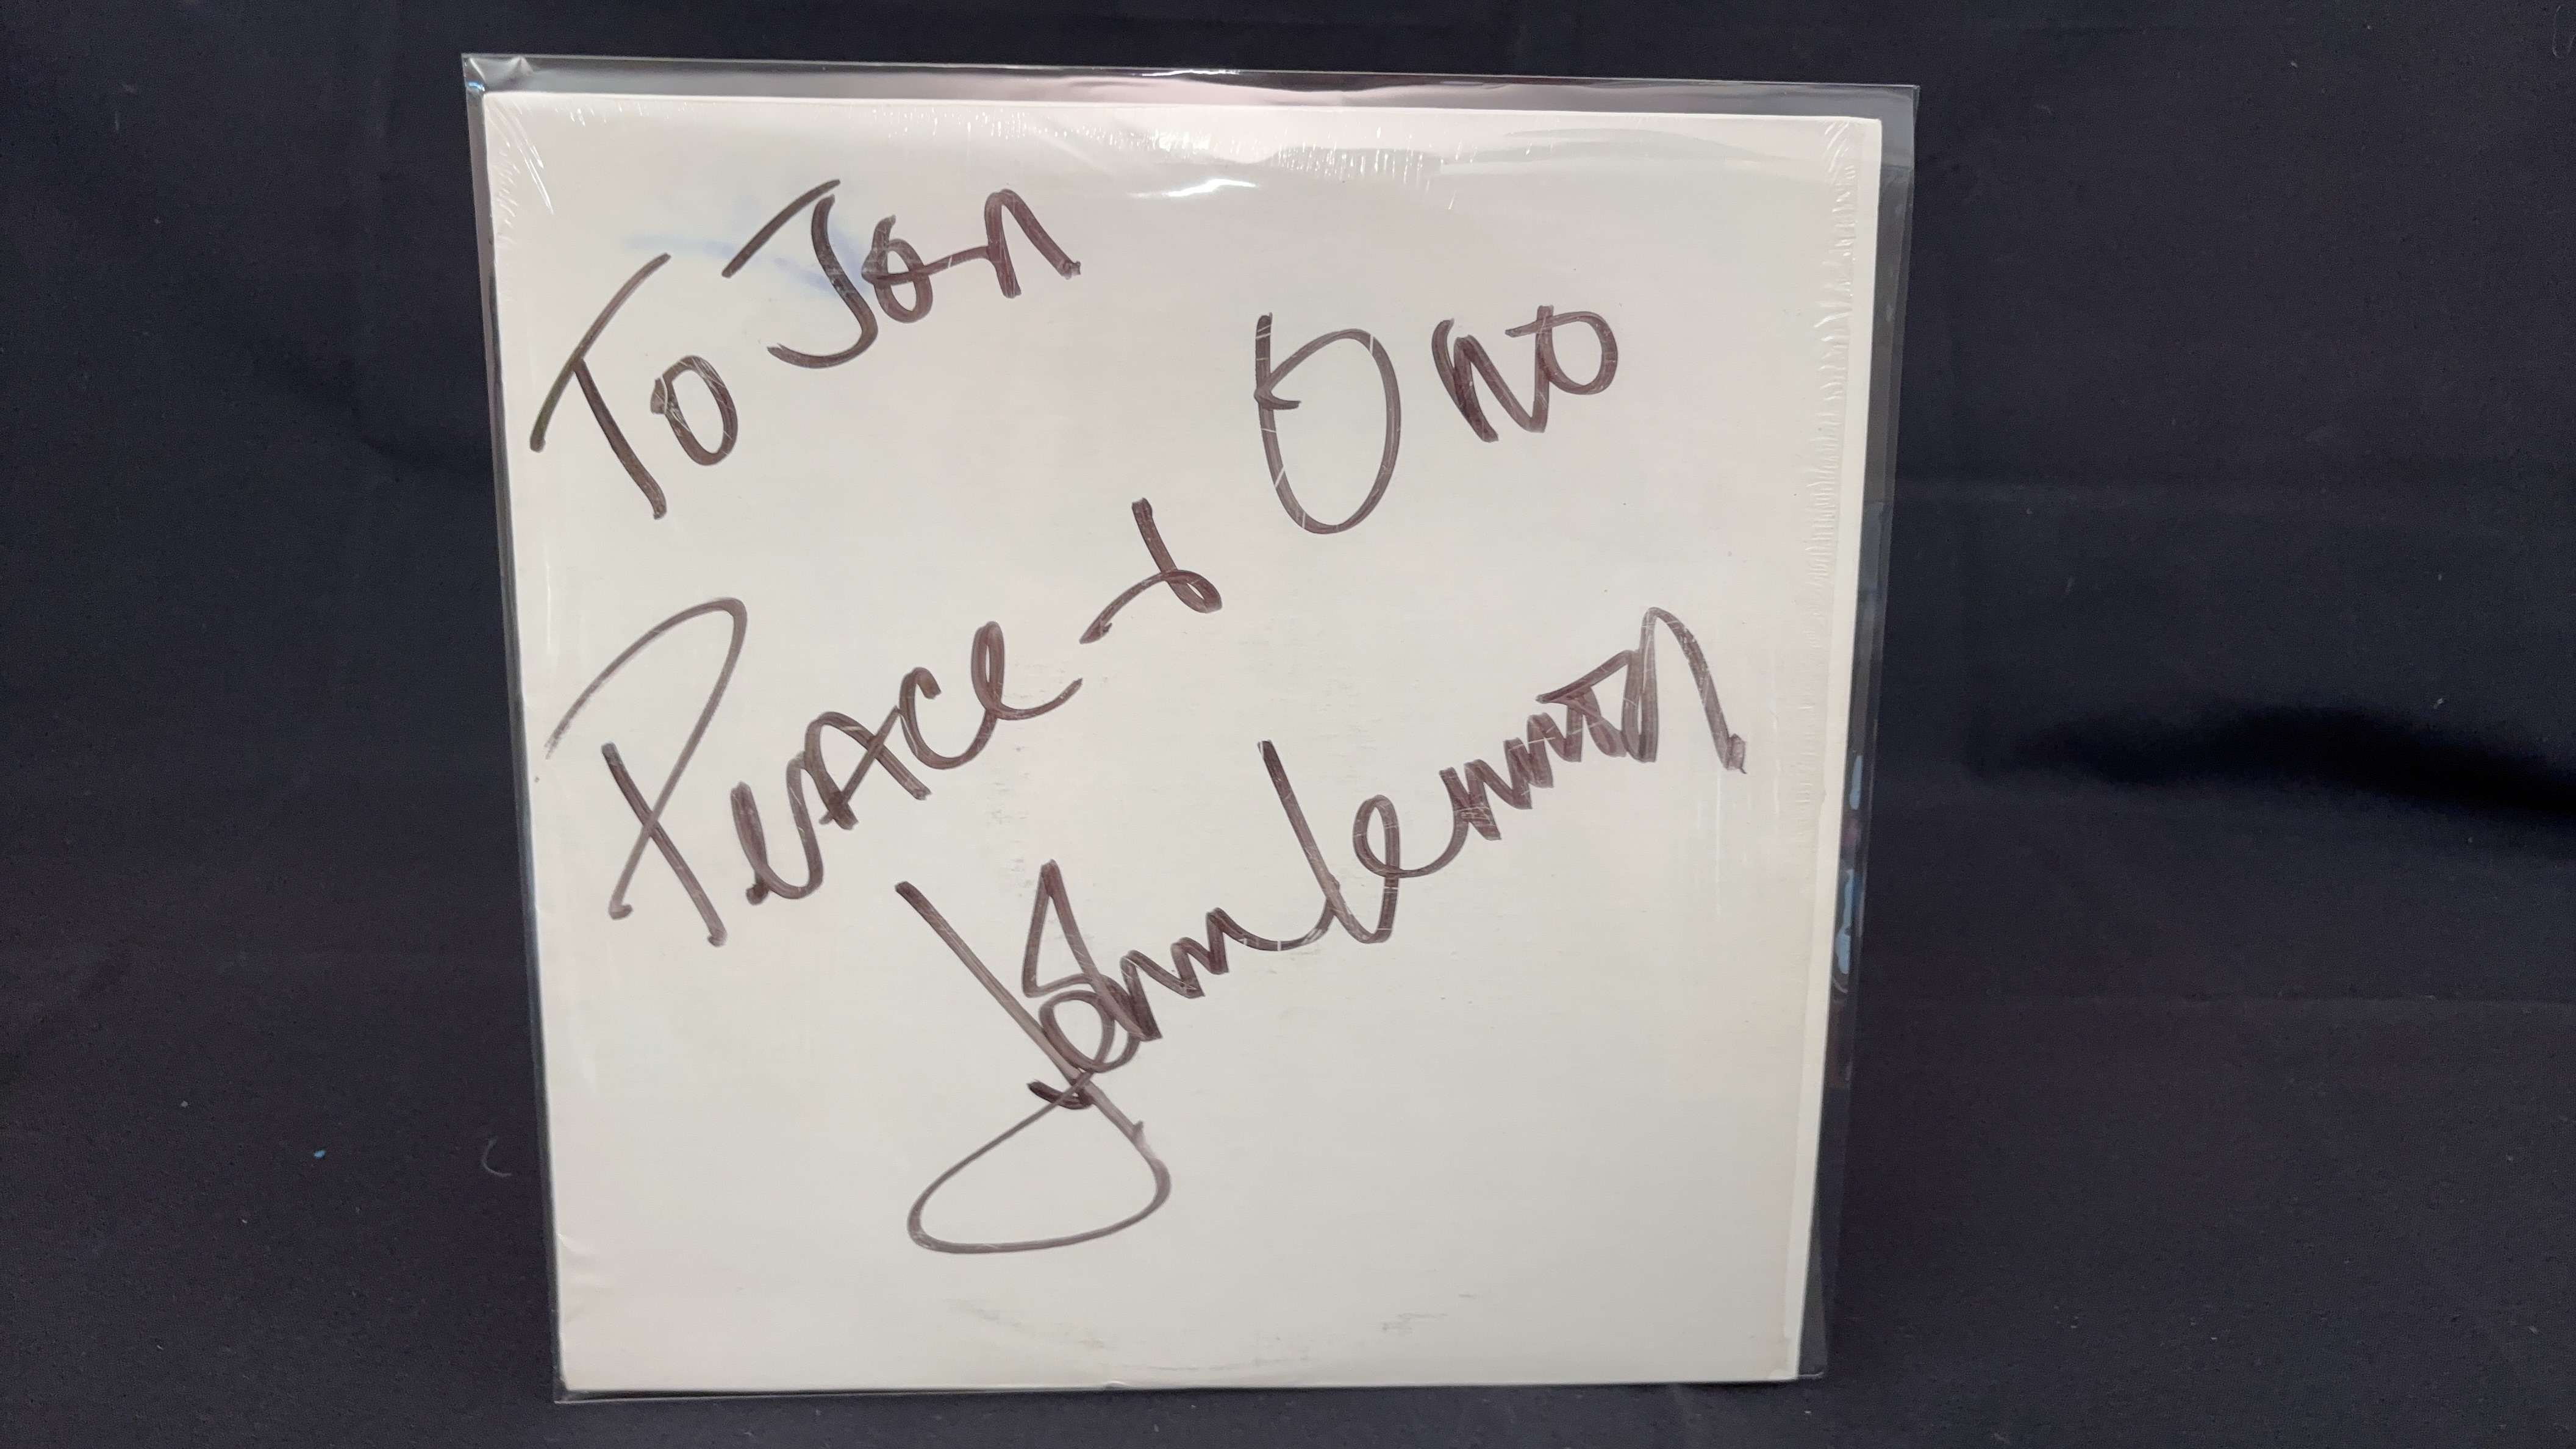 To Jon
Peace + Ono
John Lennon